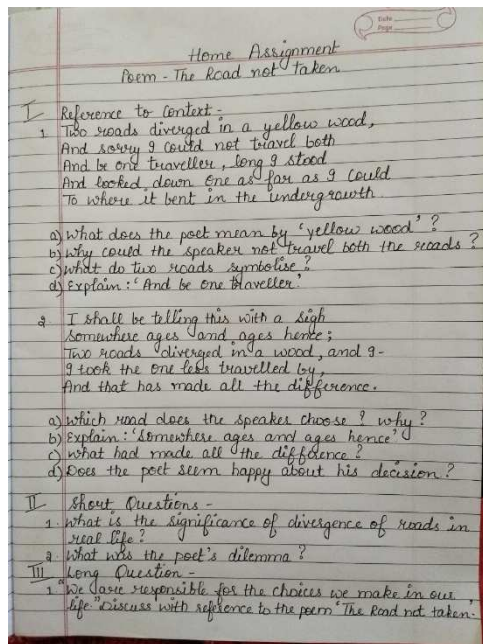 Date
Page
Home Assignment
Poem - The Road not taken
I Reference to Context -
1. Two roads diverged in a yellow wood,
And sorry I could not travel both
And be one traveller, long I stood
And looked down one as far as I could
To where it bent in the undergrowth
a) What does the poet mean by 'yellow wood'?
b) Why could the speaker not travel both the roads?
c) What do two roads symbolise?
d) Explain: 'And be one traveller.'
2 I shall be telling this with a sigh
Somewhere ages and ages hence;
Two roads diverged in a wood, and I-
I took the one less travelled by,
And that has made all the difference.
a) Which road does the speaker choose? Why?
b) Explain: 'Somewhere ages and ages hence'
c) What had made all the difference?
d) Does the poet seem happy about his decision?
II Short Questions -
1. What is the significance of divergence of roads in
real life?
2. What was the poet's dilemma?
III Long Question -
1. "We are responsible for the choices we make in our
life." Discuss with reference to the poem 'The Road not taken.